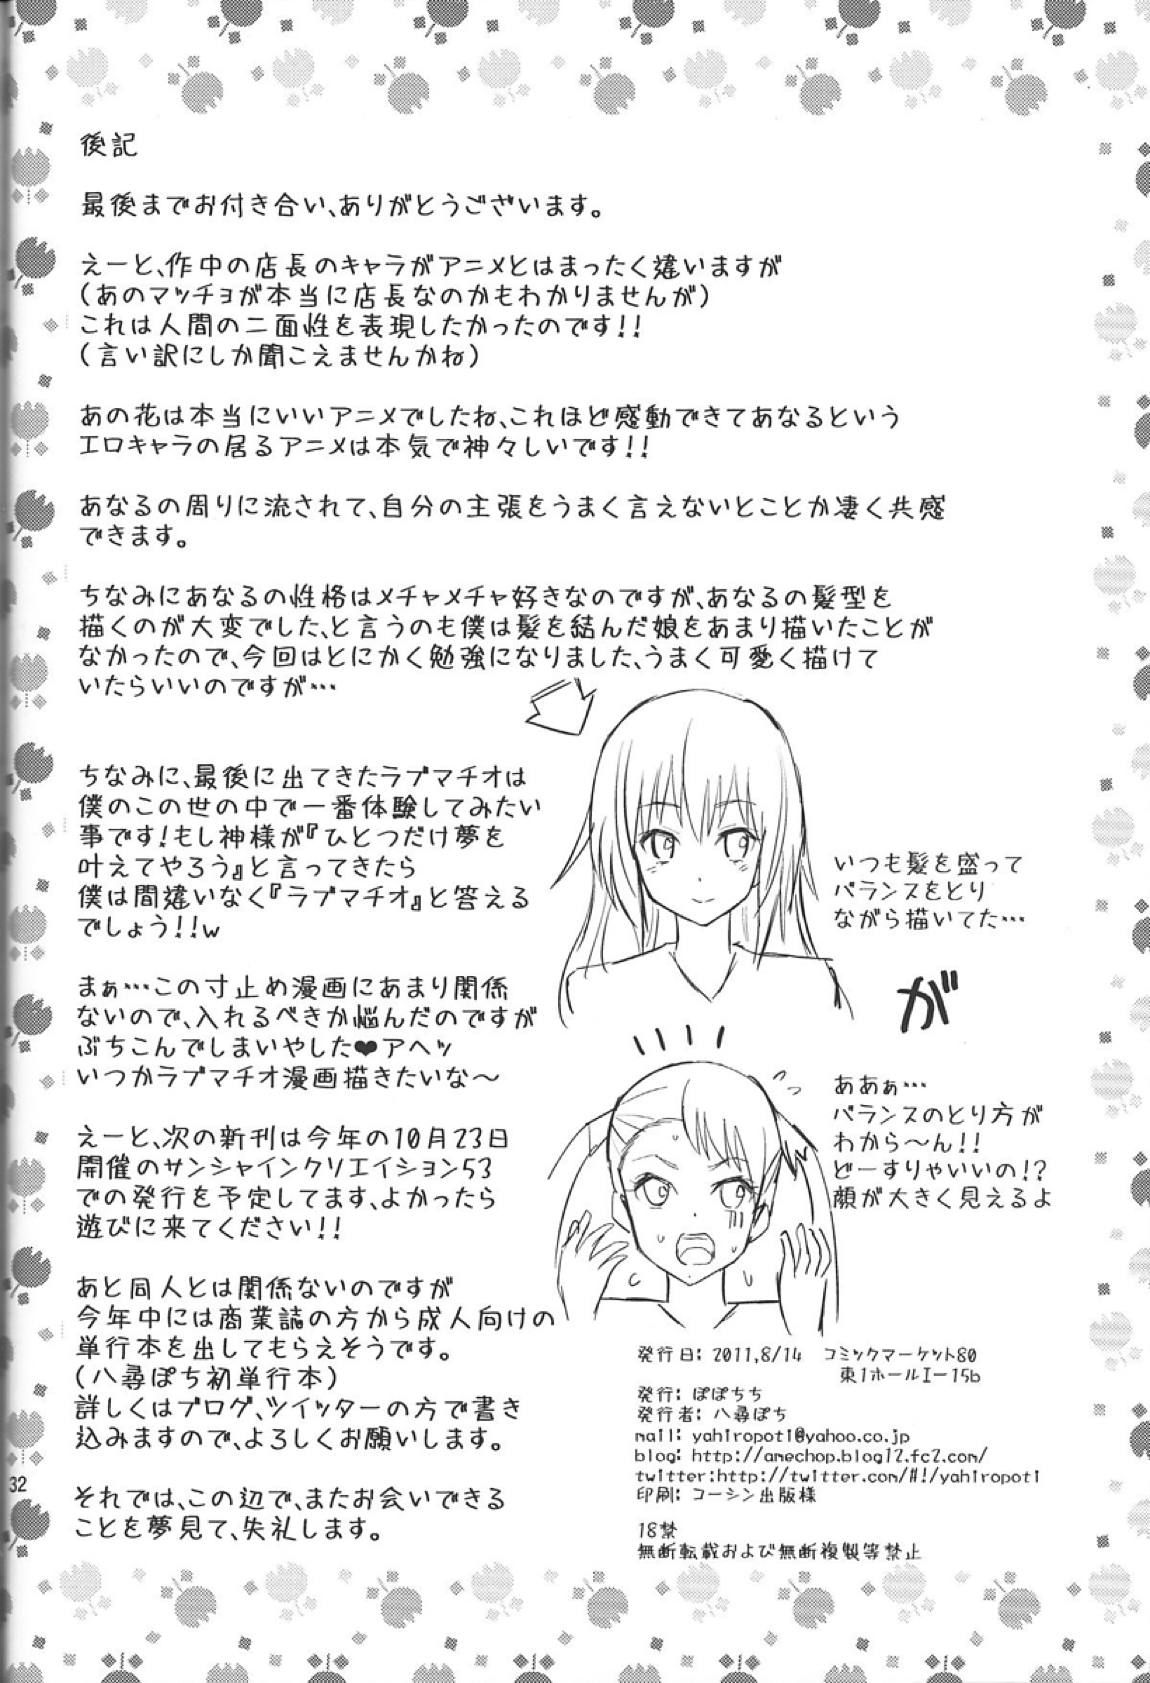 後記
最後までお付き合い、ありがとうございます。
えーと、作中の店長のキャラがアニメとはまったく違いますが
(あのマッチョが本当に店長なのかもわかりませんが)
これは人間の二面性を表現したかったのです!!
(言い訳にしか聞こえませんかね)
あの花は本当にいいアニメでしたね、これほど感動できてあなるという
エロキャラの居るアニメは本気で神々しいです!!
あなるの周りに流されて、自分の主張をうまく言えないとことか凄く共感
できます。
ちなみにあなるの性格はメチャメチャ好きなのですが、あなるの髪型を
描くのが大変でした、と言うのも僕は髪を結んだ娘をあまり描いたことが
なかったので、今回はとにかく勉強になりました、うまく可愛く描けて
いたらいいのですが…
ちなみに、最後に出てきたラブマチオは
僕のこの世の中で一番体験してみたい
事です!もし神様が『ひとつだけ夢を
叶えてやろう』と言ってきたら
僕は間違いなく『ラブマチオ』と答える
でしょう!!w
まぁ…この寸止め漫画にあまり関係
ないので、入れるべきか悩んだのですが
ぶちこんでしまいやした❤アヘッ
いつかラブマチオ漫画描きたいな～
えーと、次の新刊は今年の10月23日
開催のサンシャインクリエイション53
での発行を予定してます、よかったら
遊びに来てください!!
あと同人とは関係ないのですが
今年中には商業誌の方から成人向けの
単行本を出してもらえそうです。
(八尋ぽち初単行本)
詳しくはブログ、ツイッターの方で書き
込みますので、よろしくお願いします。
それでは、この辺で、またお会いできる
ことを夢見て、失礼します。
いつも髪を盛って
バランスをとり
ながら描いてた…
が
ああぁ…
バランスのとり方が
わから～ん!!
どーすりゃいいの!?
顔が大きく見えるよ
発行日: 2011,8/14 コミックマーケット80
東1ホールエー15b
発行: ぽぽちち
発行者: 八尋ぽち
mail: yahiropoti@yahoo.co.jp
blog: http://amechop.blog12.fc2.com/
twitter:http://twitter.com/#!/yahiropoti
印刷: コーシン出版様
18禁
無断転載および無断複製等禁止
32